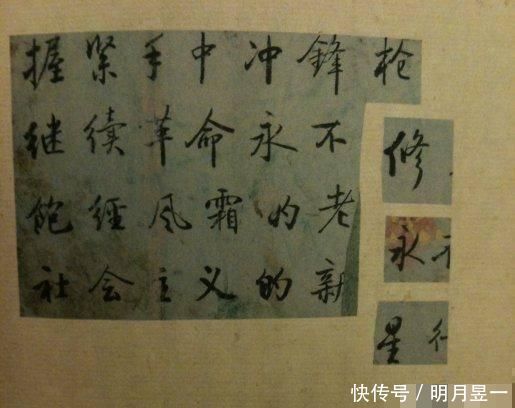 握紧手中冲锋枪
继续革命永不
饱经风霜的老
社会主义的新
修
永不
星
快传号/明月昱一